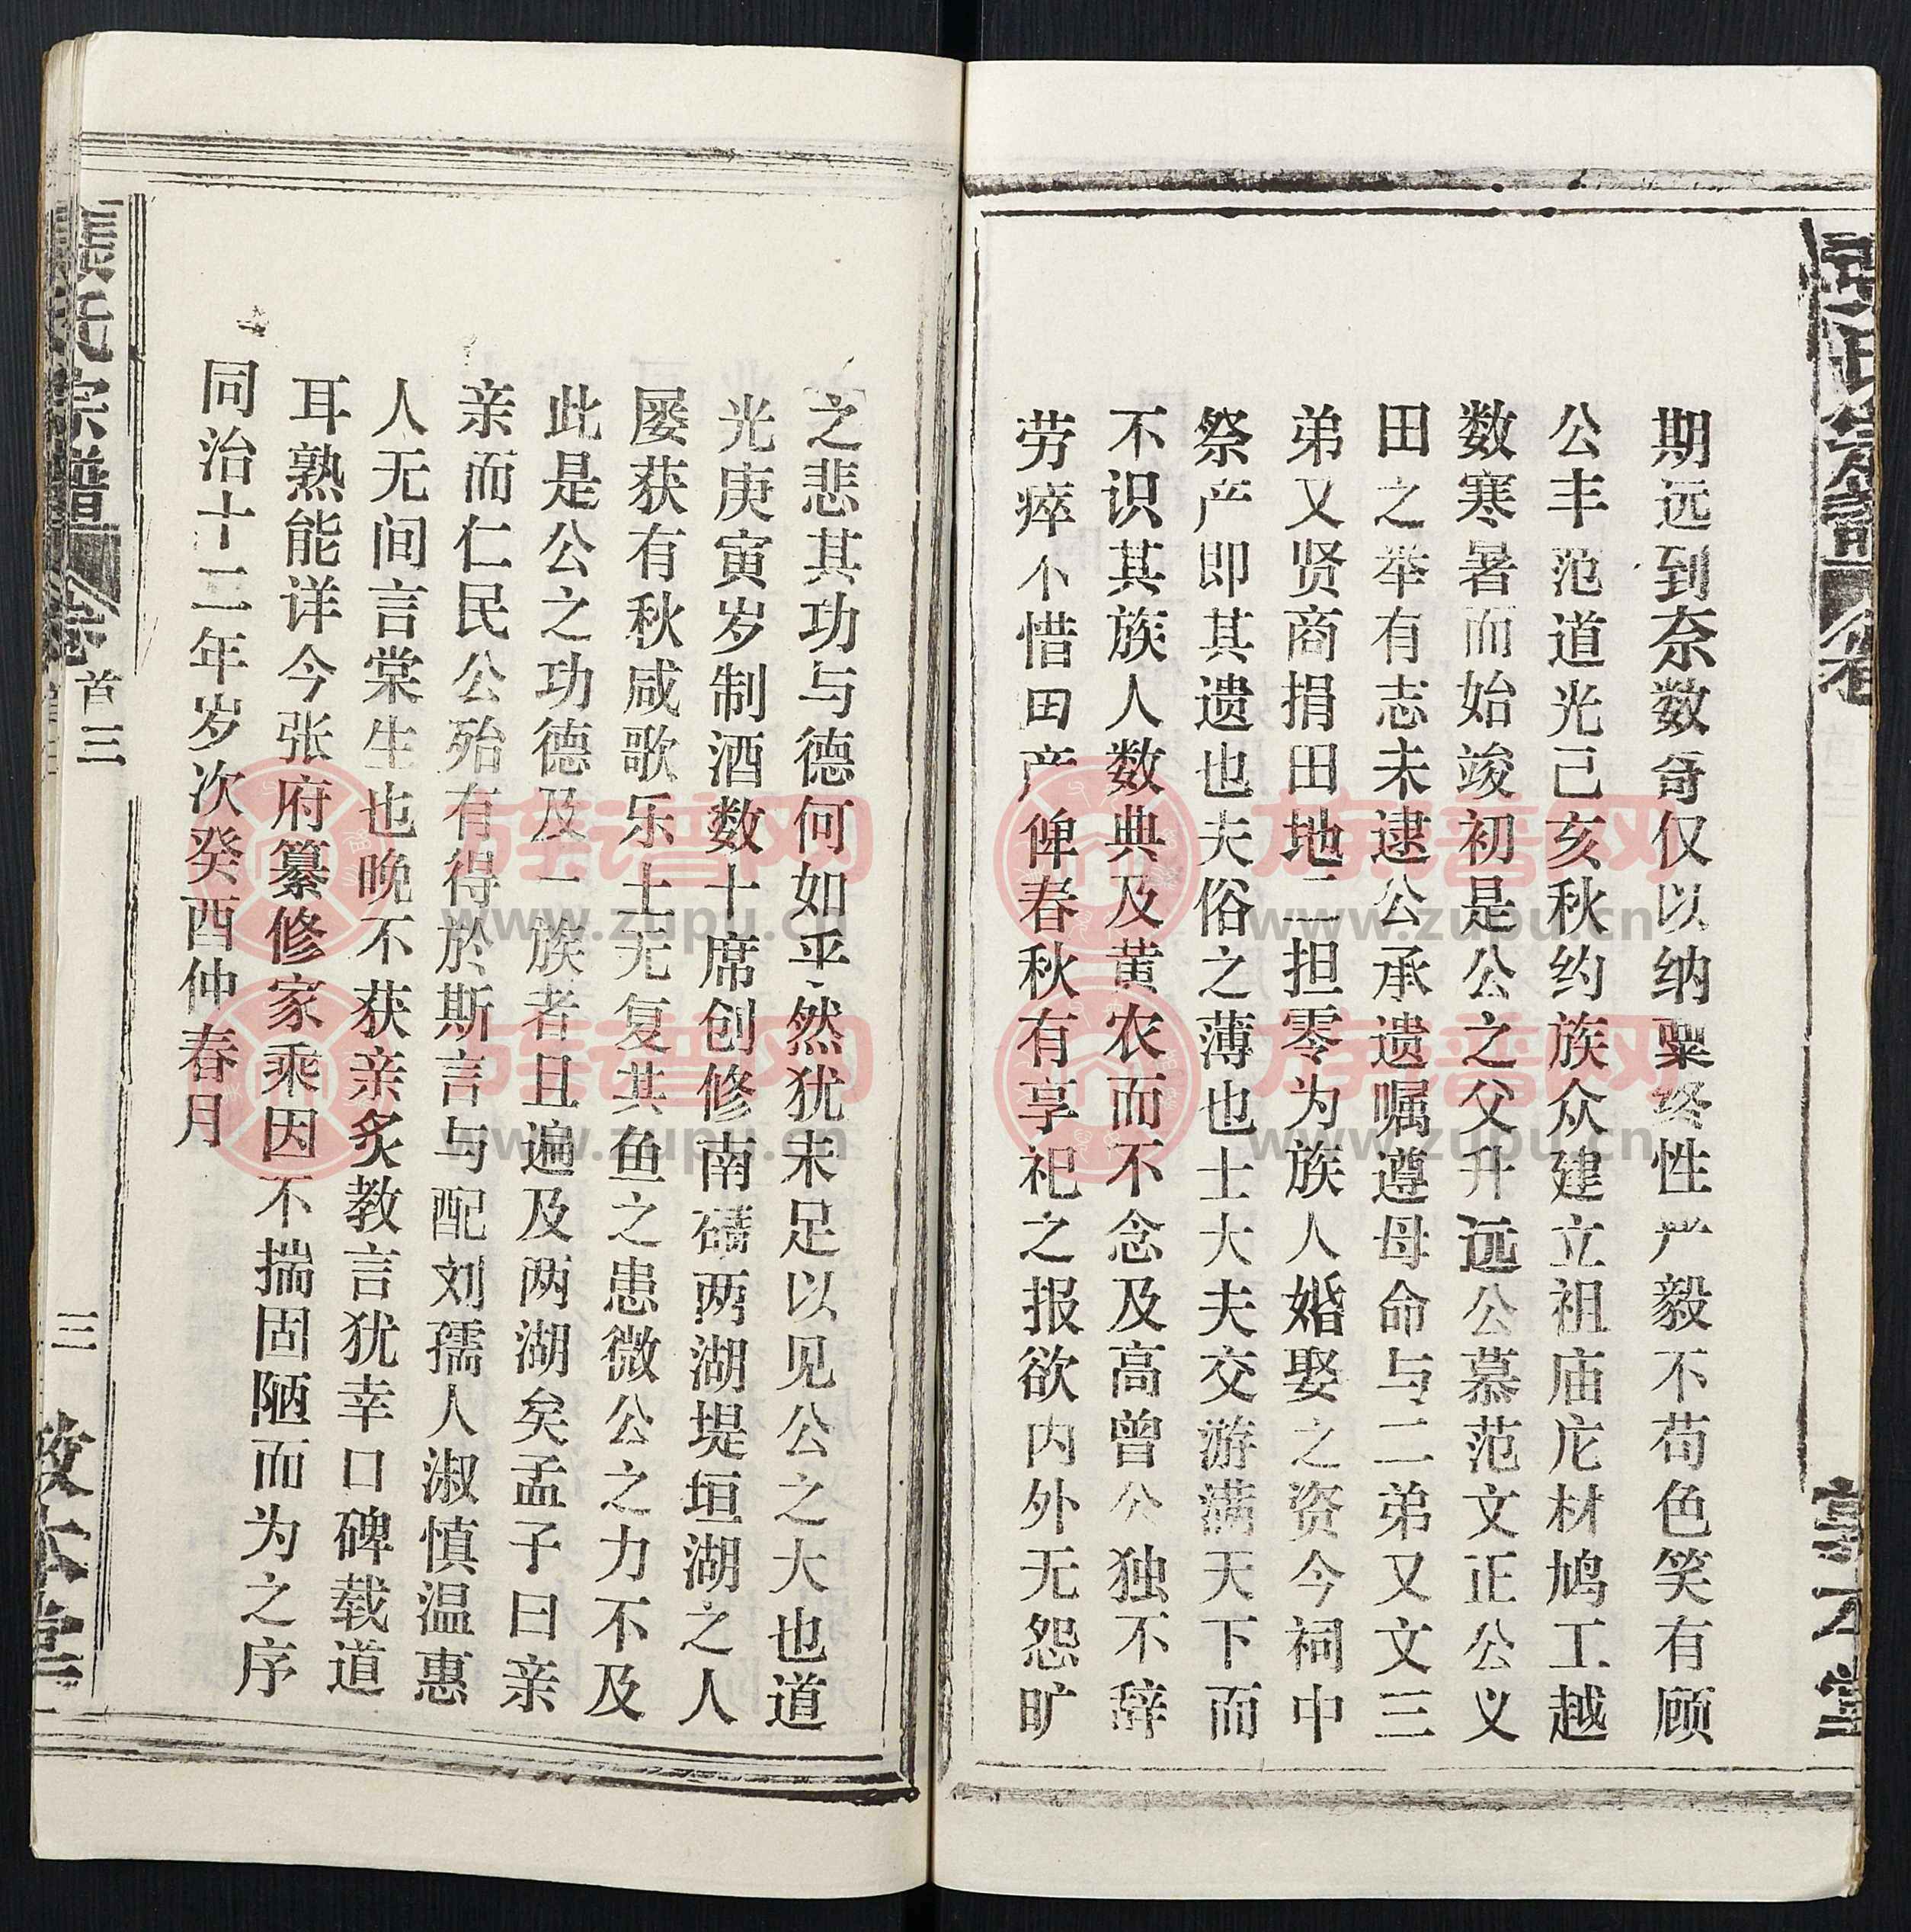 期远到奈数奇仅以纳粟终性严毅不苟色笑有顾
公丰范道光己亥秋约族众建立祖庙庀材鸠工越
数寒暑而始竣初是公之父升远公慕范文正公义
田之举有志未逮公承遗嘱遵母命与二弟又文三
弟又贤商捐田地二担零为族人婚娶之资今祠中
祭产即其遗也夫俗之薄也士大夫交游满天下而
不识其族人数典及黄农而不念及高曾公独不辞
劳瘁不惜田产俾春秋有享祀之报欲内外无怨旷
之悲其功与德何如乎然犹未足以见公之大也道
光庚寅岁制酒数十席创修南礌两湖堤垣湖之人
屡获有秋咸歌乐土无复共鱼之患微公之力不及
此是公之功德及一族者且遍及两湖矣孟子曰亲
亲而仁民公殆有得於斯言与配刘孺人淑慎温惠
人无间言棠生也晚不获亲炙教言犹幸口碑载道
耳熟能详今张府纂修家乘因不揣固陋而为之序
同治十二年岁次癸酉仲春月
張氏宗譜 卷首三
三
敦本堂
族谱网
www.zupu.cn
族谱网
www.zupu.cn
族谱网
www.zupu.cn
族谱网
www.zupu.cn